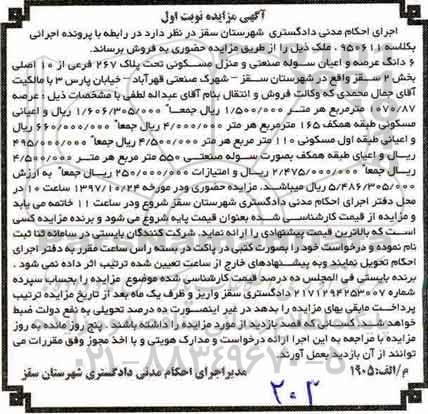 آگهی مزایده نوبت اول
اجرای احکام مدنی دادگستری شهرستان سقز در نظر دارد در رابطه با پرونده اجرائی
بکلاسه ۹۵۰۶۱۱، ملک ذیل را از طریق مزایده حضوری به فروش برساند.
۶ دانگ عرصه و اعیان سوله صنعتی و منزل مسکونی تحت پلاک ۲۶۷ فرعی از ۱۰ اصلی
بخش ۲ سقز واقع در شهرستان سقز – شهرک صنعتی قهرآباد – خیابان پارس ۳ با مالکیت
آقای جمال محمدی که وکالت فروش و انتقال بنام آقای عبداله لطفی با مشخصات ذیل : عرصه
۱۰۷۰/۸۷ مترمربع هر متر ۱/۵۰۰/۰۰۰ ریال جمعاً ۱/۶۰۶/۳۰۵/۰۰۰ ریال و اعیانی
مسکونی طبقه همکف ۱۶۵ مترمربع هر متر ۴/۰۰۰/۰۰۰ ریال جمعاً ۶۶۰/۰۰۰/۰۰۰ ریال
و اعیانی طبقه اول مسکونی ۱۱۰ متر هر متر ۴/۵۰۰/۰۰۰ ریال جمعاً ۴۹۵/۰۰۰/۰۰۰
ریال و اعیای طبقه همکف بصورت سوله صنعتی ۵۵۰ متر هر متر ۴/۵۰۰/۰۰۰
ریال جمعاً ۲/۴۷۵/۰۰۰/۰۰۰ ریال و امتیازات ۲۵۰/۰۰۰/۰۰۰ ریال جمعاً به ارزش
۵/۴۸۶/۳۰۵/۰۰۰ ریال میباشد. مزایده حضوری ودر مورخه ۱۳۹۷/۱۰/۲۴ ساعت ۱۰ در
محل دفتر اجرای احکام مدنی دادگستری شهرستان سقز شروع ودر ساعت ۱۱ خاتمه می یابد
و مزایده از قیمت کارشناسی شده بعنوان قیمت پایه شروع می شود و برنده مزایده کسی
است که بالاترین قیمت پیشنهادی را ارائه نماید. شرکت کنندگان بایستی در سامانه ثنا ثبت
نام نموده و درخواست خود را بصورت کتبی در پاکت در بسته راس ساعت مقرر به دفتر اجرای
احکام تحویل نمایند وبه پیشنهادهای خارج از ساعت تعیین شده ترتیب اثر داده نمی شود .
برنده بایستی فی المجلس ده درصد قیمت کارشناسی شده موضوع مزایده را بحساب سپرده
شماره ۲۱۷۱۲۹۴۲۵۳۰۰۷ دادگستری سقز واریز و ظرف یک ماه بعد از تاریخ مزایده ترتیب
پرداخت مابقی بهای مزایده را بدهد در غیر اینصورت ده درصد تحویلی به نفع دولت ضبط
خواهد شد. کسانی که قصد بازدید از مورد مزایده را داشته باشند . پنج روز مانده به روز
مزایده با مراجعه به این اجرا ارائه درخواست و مدارک هویتی و با اخذ مجوز وفق مقررات می
توانند از آن بازدید بعمل آورند.
م/الف:۱۹۰۵ مدیراجرای احکام مدنی دادگستری شهرستان سقز
۰۲۱-۸۸۳۴۹۶۷۰-۵
۲۰۳